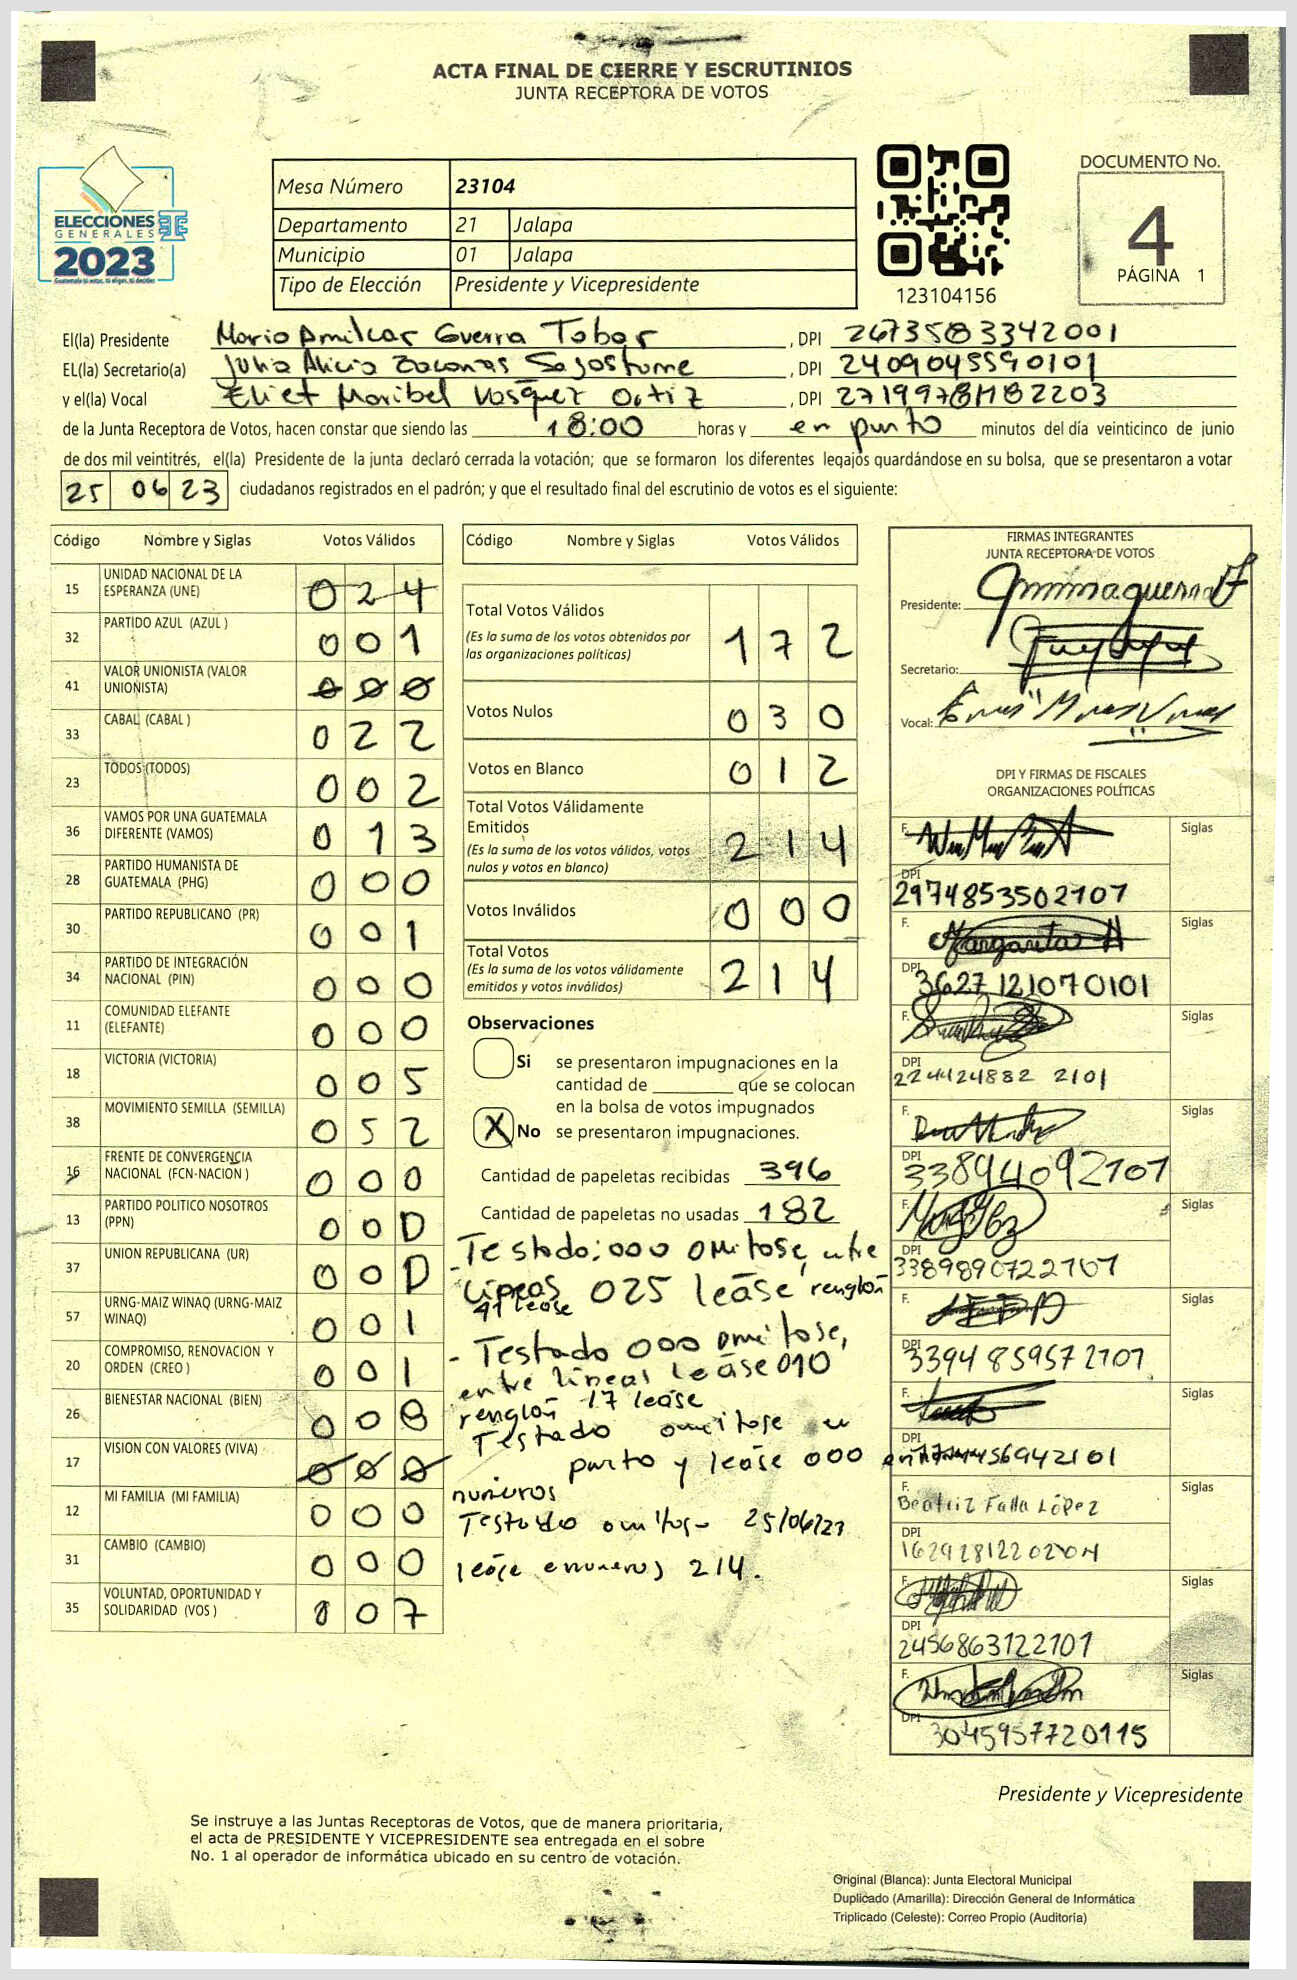 ACTA FINAL DE CIERRE Y ESCRUTINIOS
JUNTA RECEPTORA DE VOTOS
ELECCIONES
GENERALES
2023
Mesa Número 23104
Departamento 21 Jalapa
Municipio 01 Jalapa
Tipo de Elección Presidente y Vicepresidente
123104156
DOCUMENTO No.
4
PÁGINA 1
El(la) Presidente Mario Amilcar Guerra Tobar, DPI 2673583342001
EL(la) Secretario(a) Julia Alicia Sagastume, DPI 2409045590101
y el(la) Vocal Maribel Vasquez Ortiz, DPI
de la Junta Receptora de Votos, hacen constar que siendo las 18:00 horas y en punto minutos del día veinticinco de junio
de dos mil veintitrés, el(la) Presidente de la junta declaró cerrada la votación; que se formaron los diferentes legajos guardándose en su bolsa, que se presentaron a votar
25 06 23 ciudadanos registrados en el padrón; y que el resultado final del escrutinio de votos es el siguiente:
Código Nombre y Siglas Votos Válidos
15 UNIDAD NACIONAL DE LA ESPERANZA (UNE) 024
32 PARTIDO AZUL (AZUL ) 001
41 VALOR UNIONISTA (VALOR UNIONISTA) 000
33 CABAL (CABAL ) 022
23 TODOS (TODOS) 002
36 VAMOS POR UNA GUATEMALA DIFERENTE (VAMOS) 013
28 PARTIDO HUMANISTA DE GUATEMALA (PHG) 000
30 PARTIDO REPUBLICANO (PR) 001
34 PARTIDO DE INTEGRACIÓN NACIONAL (PIN) 000
11 COMUNIDAD ELEFANTE (ELEFANTE) 000
18 VICTORIA (VICTORIA) 005
38 MOVIMIENTO SEMILLA (SEMILLA) 052
16 FRENTE DE CONVERGENCIA NACIONAL (FCN-NACION ) 000
13 PARTIDO POLITICO NOSOTROS (PPN) 000
37 UNION REPUBLICANA (UR) 000
57 URNG-MAIZ WINAQ (URNG-MAIZ WINAQ) 001
20 COMPROMISO, RENOVACION Y ORDEN (CREO ) 001
26 BIENESTAR NACIONAL (BIEN) 008
17 VISION CON VALORES (VIVA) 000
12 MI FAMILIA (MI FAMILIA) 000
31 CAMBIO (CAMBIO) 000
35 VOLUNTAD, OPORTUNIDAD Y SOLIDARIDAD (VOS ) 007
Código Nombre y Siglas Votos Válidos
Total Votos Válidos 172
(Es la suma de los votos obtenidos por las organizaciones políticas)
Votos Nulos 030
Votos en Blanco 012
Total Votos Válidamente Emitidos 214
(Es la suma de los votos válidos, votos nulos y votos en blanco)
Votos Inválidos 000
Total Votos 214
(Es la suma de los votos válidamente emitidos y votos inválidos)
Observaciones
Si se presentaron impugnaciones en la
cantidad de que se colocan
en la bolsa de votos impugnados
X No se presentaron impugnaciones.
Cantidad de papeletas recibidas 396
Cantidad de papeletas no usadas 182
- Testado: 000 omitose, entre
lineas 025 lease renglón
41 lease
- Testado 000 omitose,
entre lineas lease 010
renglon 17 lease
Testado omitose en
punto y lease 000 en
numeros
Testado omitose 25/06/23
lease en numeros 214.
FIRMAS INTEGRANTES
JUNTA RECEPTORA DE VOTOS
Presidente:
Secretario:
Vocal:
DPI Y FIRMAS DE FISCALES
ORGANIZACIONES POLÍTICAS
F. Siglas
DPI
2974853502107
F. Margarita H Siglas
DPI
3627121070101
F. Siglas
DPI
224424882 2101
F. Siglas
DPI
338944092101
F. Siglas
DPI
F. Siglas
DPI
3394859572101
F. Siglas
DPI
F. Siglas
Beatriz Falla López
DPI
F. Siglas
DPI
2456863122101
F. Siglas
DPI
3045957720115
Presidente y Vicepresidente
Se instruye a las Juntas Receptoras de Votos, que de manera prioritaria,
el acta de PRESIDENTE Y VICEPRESIDENTE sea entregada en el sobre
No. 1 al operador de informática ubicado en su centro de votación.
Original (Blanca): Junta Electoral Municipal
Duplicado (Amarilla): Dirección General de Informática
Triplicado (Celeste): Correo Propio (Auditoría)